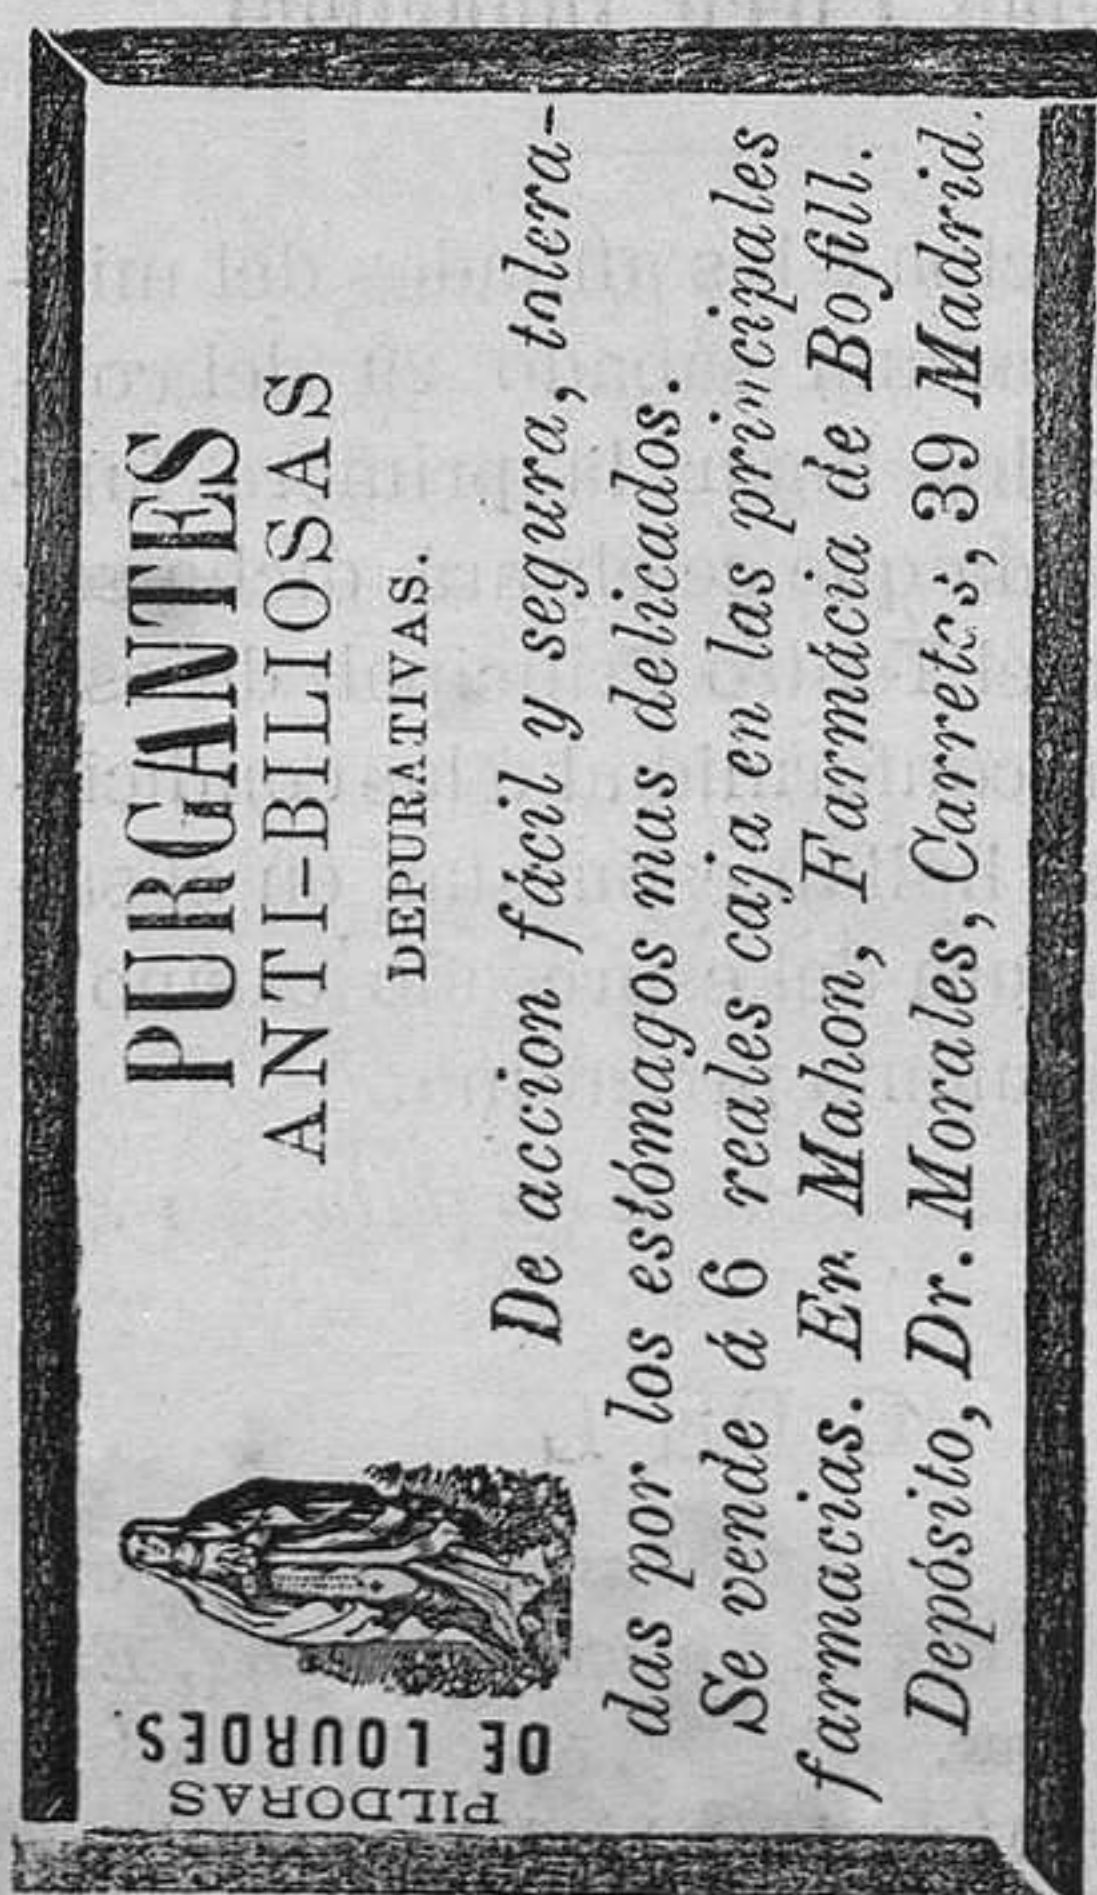 PILDORAS
DE LOURDES
PURGANTES
ANTI-BILIOSAS
DEPURATIVAS.
De accion fácil y segura, tolera-
das por los estómagos mas delicados.
Se vende á 6 reales caja en las principales
farmacias. En Mahon, Farmácia de Bofill.
Depósito, Dr. Morales, Carretas, 39 Madrid.